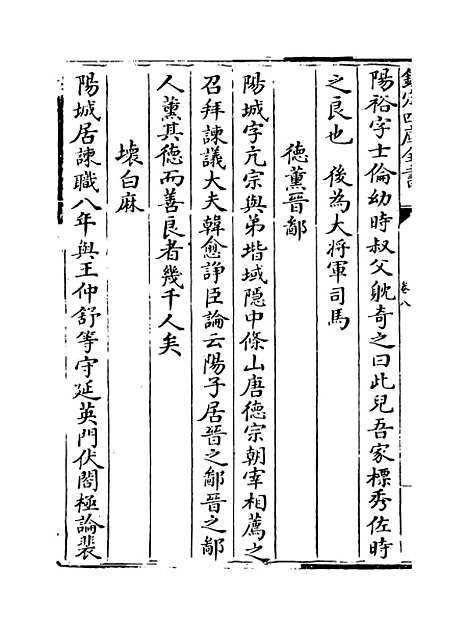 欽定四庫全書
卷八
陽裕字士倫幼時叔父躭竒之曰此兒吾家標秀佐時
之良也　後為大將軍司馬
德薰晉鄙
陽城字亢宗與弟堦域隠中條山唐德宗朝宰相薦之
召拜諫議大夫韓愈諍臣論云陽子居晉之鄙晉之鄙
人薰其德而善良者幾千人矣
壊白麻
陽城居諫職八年與王仲舒等守延英門伏閤極論裴